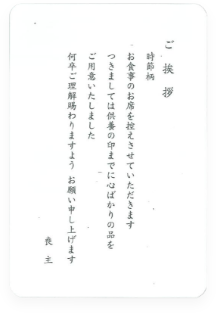 ご挨拶
時節柄
お食事のお席を控えさせていただきます
つきましては供養の印までに心ばかりの品を
ご用意いたしました
何卒ご理解賜わりますよう お願い申し上げます
喪主